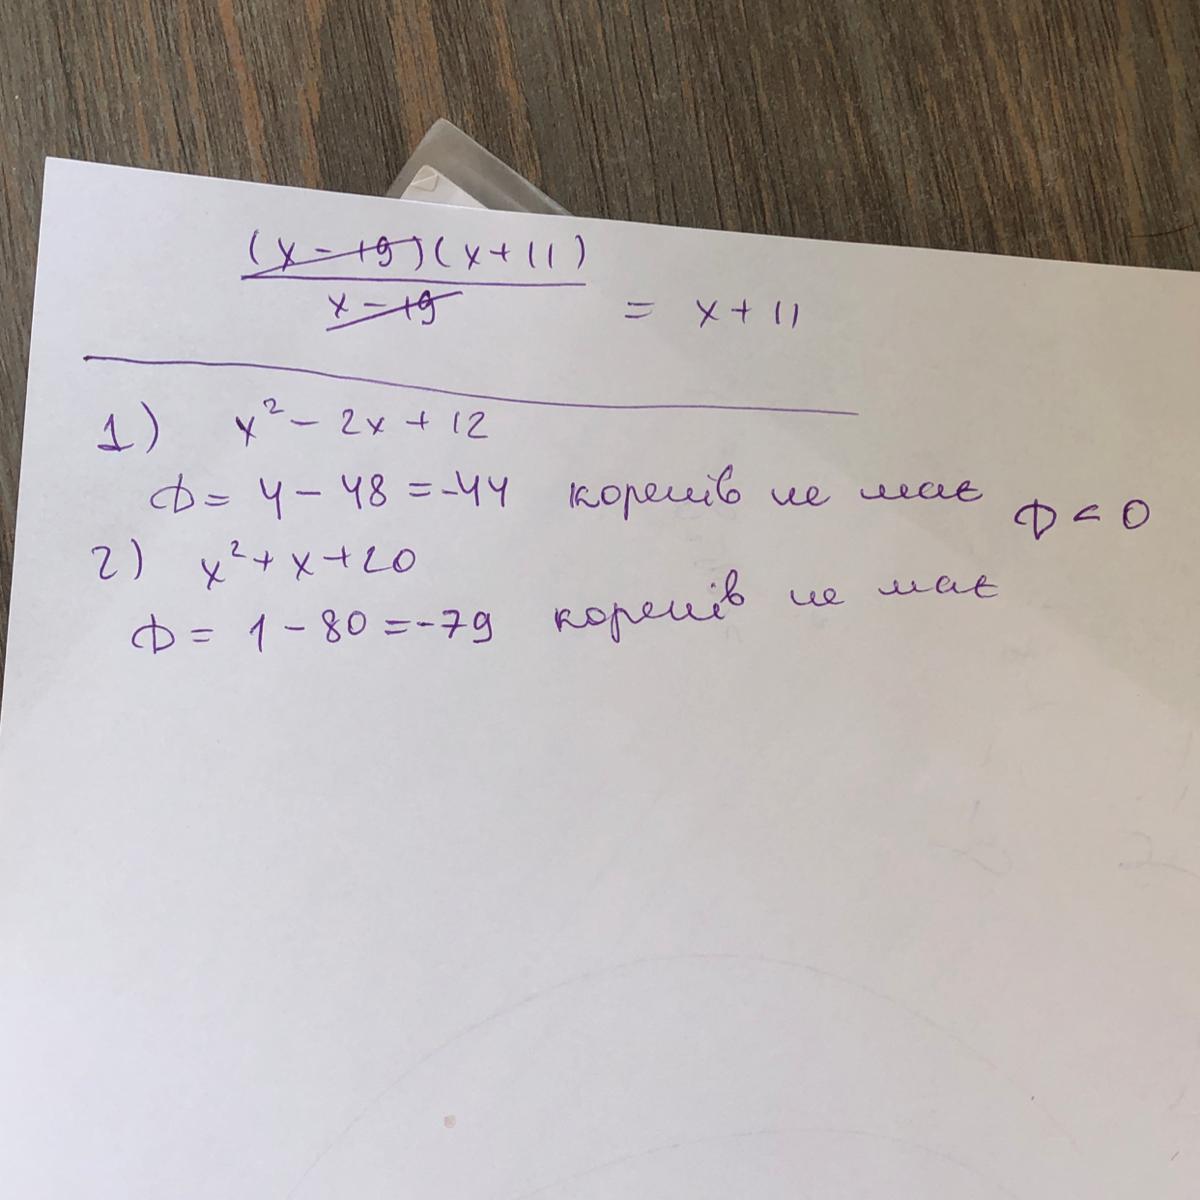 (x-19)(x+11)
x-19
= x+11
1) x²-2x+12
D=4-48=-44 коренів не має D<0
2) x²+x+20
D=1-80=-79 коренів не має